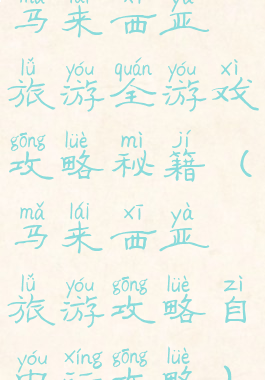 mǎ lái xī yà
马来西亚
lǚ yóu quán yóu xì
旅游全游戏
gōng lüè mì jí
攻略秘籍（
mǎ lái xī yà
马来西亚
lǚ yóu gōng lüè zì
旅游攻略自
yóu xíng gōng lüè
由行攻略）